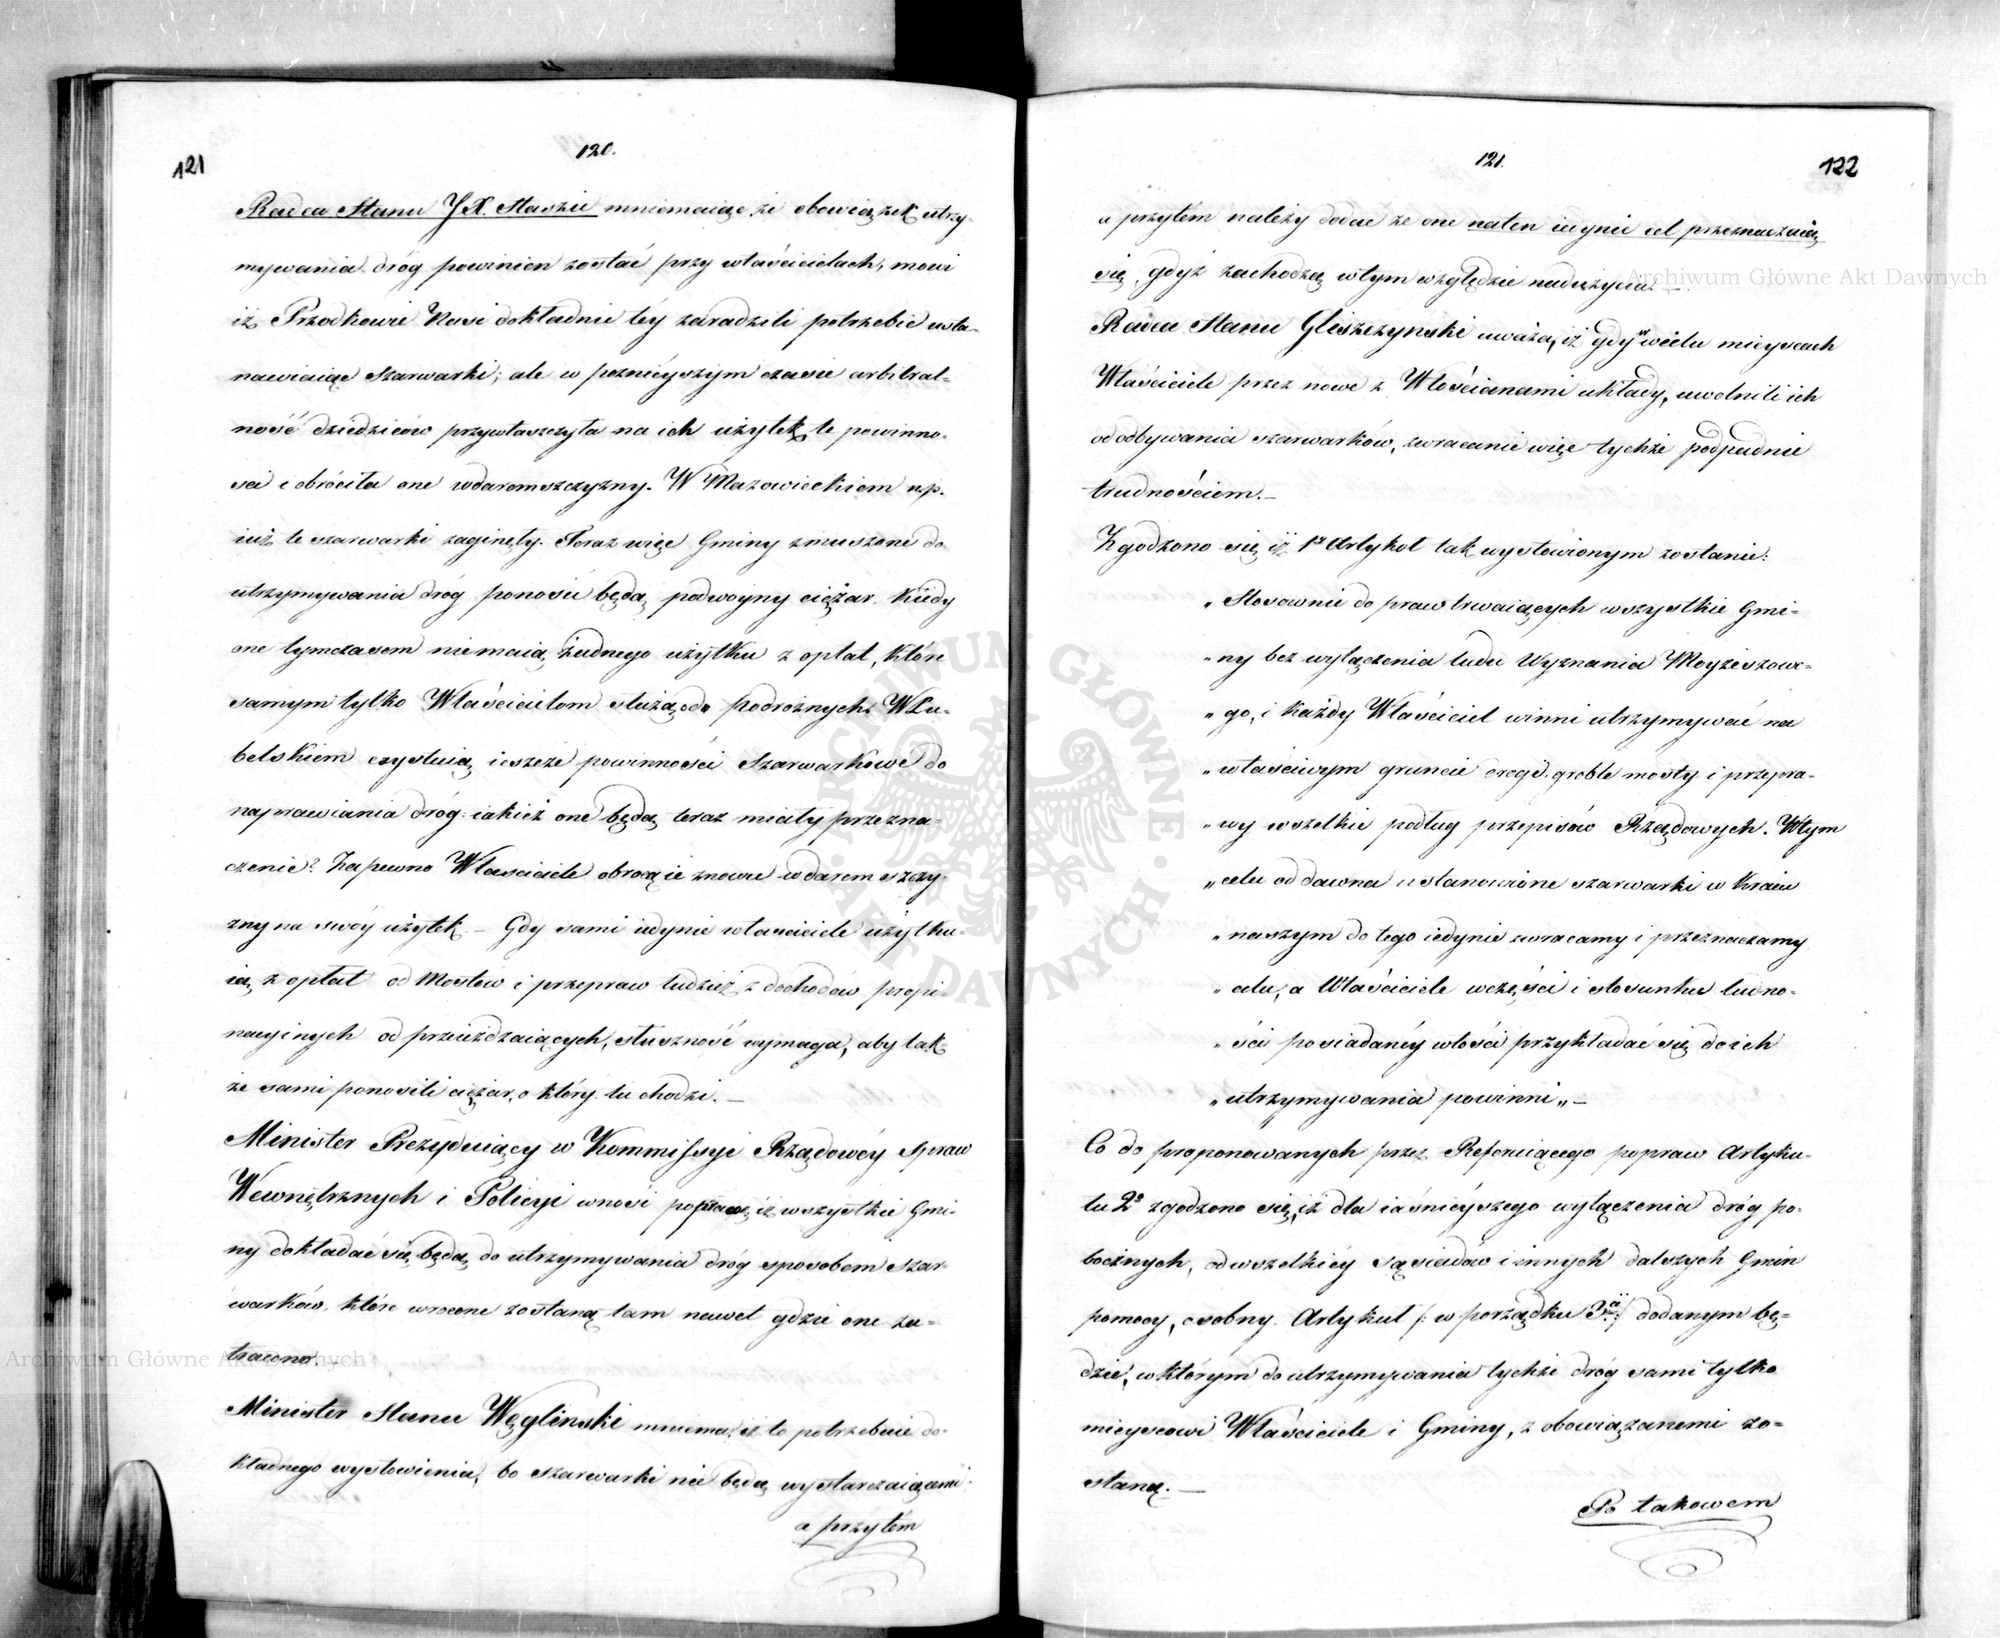 121
120.
Radca Stanu JX. Staszic mniemaiąc że obowiązek utrzy-
mywania dróg powinien zostać przy właścicielach, mowi
iż Przodkowie Nasi dokładnie téy zaradzili potrzebie usta-
nawiaiąc Szarwarki; ale w poznieyszym czasie arbitral-
ność dziedziców przywłaszczyła na ich użytek te powinno-
sci i obróciła one wdaremszczyzny. W Mazowieckiem n.p.
iuż te szarwarki zaginęły. Teraz więc Gminy zmuszone do
utrzymywania dróg ponosić będą podwoyny ciężar. Kiedy
one tymczasem niemaią żadnego użytku z opłat, które
samym tylko Właścicielom służą od podrożnych. W Lu-
belskiem exystuią ieszcze powinności Szarwarkowe do
naprawiania dróg: iakież one będą teraz miały przezna-
czenie? Zapewno Właściciele obrocą ie znowu wdaremszczy-
zny na swóy użytek. – Gdy sami iedynie właściciele użytku-
ią z opłat od Mostów i przepraw tudzież z dochodów propi-
nacyinych od przeieżdzaiących, słuszność wymaga, aby tak-
że sami ponosili ciężar, o który tu chodzi. —
Minister Prezyduiący w Kommissyi Rządowéy Spraw
Wewnętrznych i Policyi wnosi poprawę, iż wszystkie Gmi-
ny dokładać się będą do utrzymywania dróg sposobem szar-
warków, które wrócone zostaną tam nawet gdzie one za-
tracono. —
Minister Stanu Węglinski mniema, iż to potrzebuie do-
kładnego wysłowienia, bo szarwarki nie będą wystarczaiącemi:
a przytém
121.
122
a przytém należy dodać że one na ten iedynie cel przeznaczaią
się, gdyż zachodzą wtym względzie nadużycia. —
Radca Stanu Gliszczynski uważa, iż gdy w wielu mieyscach
Właściciele przez nowe z Włościanami układy, uwolnili ich
od odbywania szarwarków, zwracanie więc tychże podpadnie
trudnościom. —
Zgodzono się iż 1szy Artykuł tak wysłowionym zostanie:
„ Stosownie do praw trwaiących wszystkie Gmi-
„ ny bez wyłączenia ludu Wyznania Moyżeszowe-
„ go, i każdy Właściciel winni utrzymywać na
„ właściwym gruncie drogi, groble mosty i przepra-
„ wy wszelkie podług przepisów Rządowych. Wtym
„ celu od dawna ustanowione szarwarki w Kraiu
„ naszym do tego iedynie zwracamy i przeznaczamy
„ celu, a Właściciele wczęści i stosunku ludno-
„ ści posiadanéy włości przykładać się do ich
„ utrzymywania powinni „ —
Co do proponowanych przez Referuiącego popraw Artyku-
łu 2º zgodzono się, iż dla iaśnieyszego wyłączenia dróg po-
bocznych, od wszelkiéy sąsiadów i innych dalszych Gmin
pomocy, osobny Artykuł /: w porządku 3ci :/ dodanym bę-
dzie, w którym do utrzymywania tychże dróg sami tylko
mieyscowi Właściciele i Gminy, zobowiązanemi zo-
staną. —
Po takowem